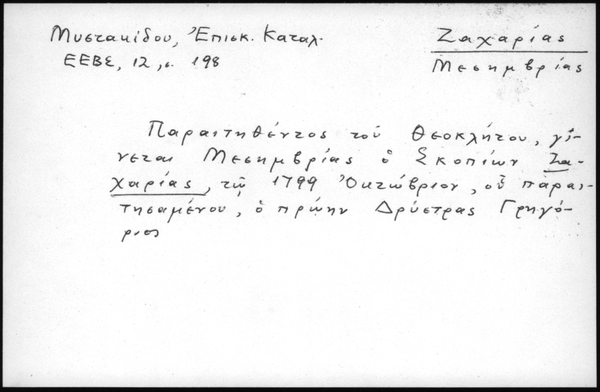 Μυστακίδου, Ἐπισκ. Καταλ.
ΕΕΒΣ, 12, σ. 198
Ζαχαρίας
Μεσημβρίας
Παραιτηθέντος τοῦ Θεοκλήτου, γί-
νεται Μεσημβρίας ὁ Σκοπίων Ζα-
χαρίας, τῷ 1799 Ὀκτώβριον, οὗ παραι-
τησαμένου, ὁ πρώην Δρύστρας Γρηγό-
ριος